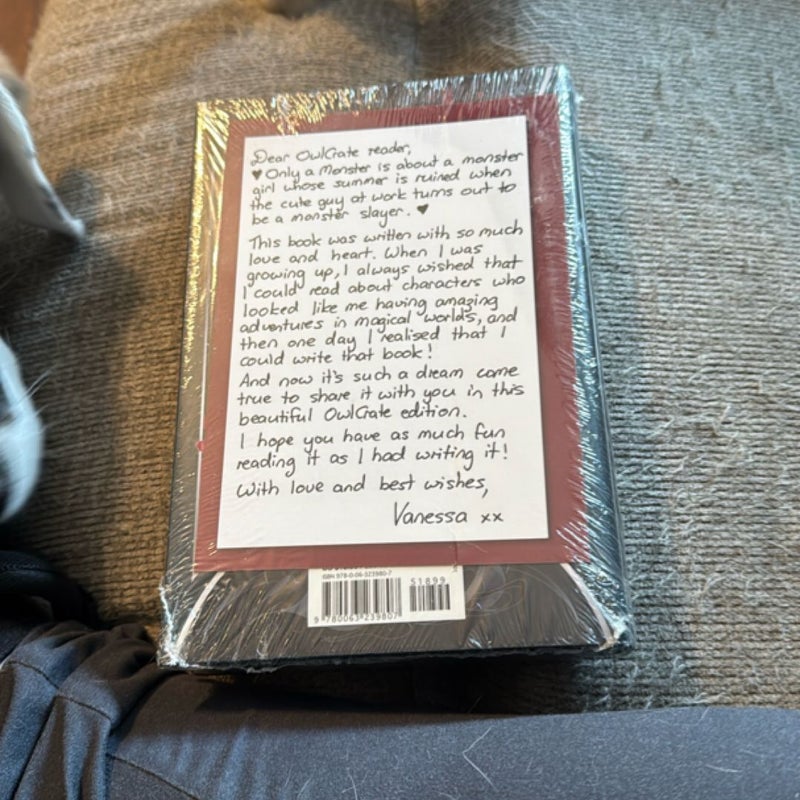 Dear OwlCrate reader,
♥ Only a Monster is about a monster
girl whose summer is ruined when
the cute guy at work turns out to
be a monster slayer. ♥
This book was written with so much
love and heart. When I was
growing up, I always wished that
I could read about characters who
looked like me having amazing
adventures in magical worlds, and
then one day I realised that I
could write that book!
And now it's such a dream come
true to share it with you in this
beautiful OwlCrate edition.
I hope you have as much fun
reading it as I had writing it!
With love and best wishes,
Vanessa xx
ISBN 978-0-06-323980-7
51899
9 780063 239807